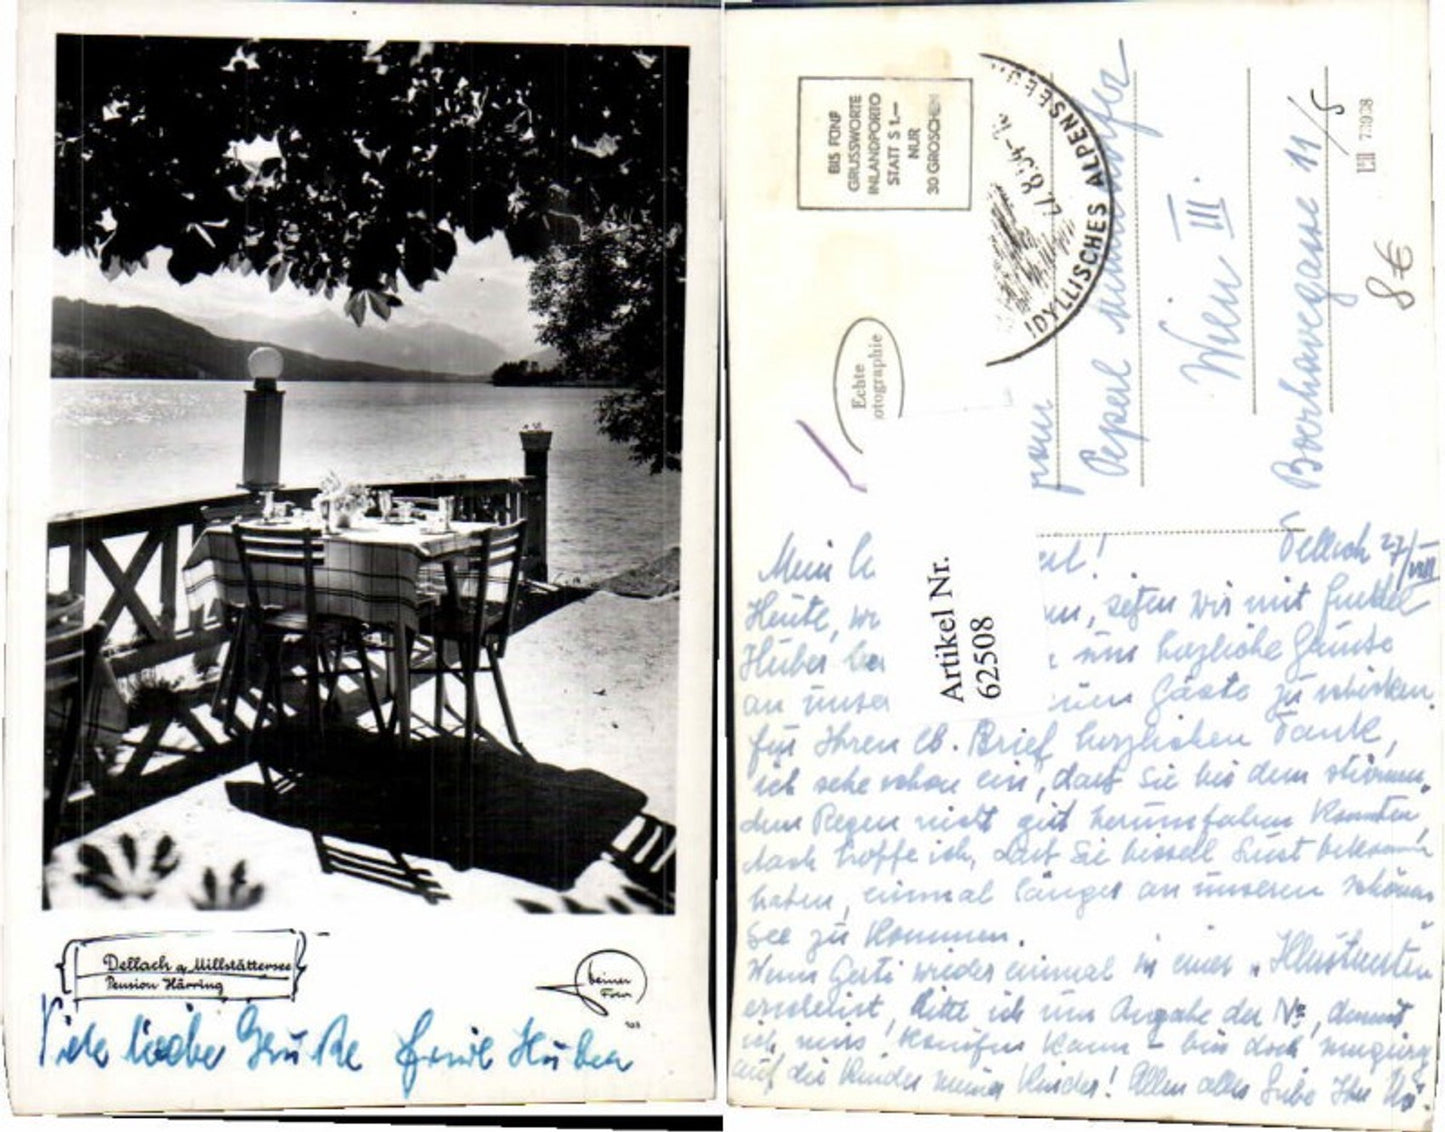 Dellach a. Millstättersee
Pension Härring
beiner
Foto
Viele liebe Grüße Emil Huber
BIS FÜNF
GRUSSWORTE
INLANDPORTO
STATT S 1.—
NUR
30 GROSCHEN
IDYLLISCHES ALPENSEEB
Echte
otographie
Frau
Peperl
Wien III.
Boerhavegasse 11/5
8€
Artikel Nr.
62508
Dellach 27/VIII
Mein l
Heute, wir mit
Huber uns herzliche Grüsse
an unse Gäste zu schicken.
für Ihren lb. Brief herzlichen Dank,
ich sehe schon ein, dass Sie bei dem strömen-
dem Regen nicht gut herumfahren konnten,
doch hoffe ich, dass Sie bissell Lust bekommen
haben, einmal länger an unseren schönen
See zu kommen.
Wenn Gerti wieder einmal in einer „Illustrierten
erscheint, bitte ich um Angabe der №, damit
ich mir kaufen kann – bin doch neugierig
auf die Kinder meiner Kinder! Allen alles Liebe Ihre